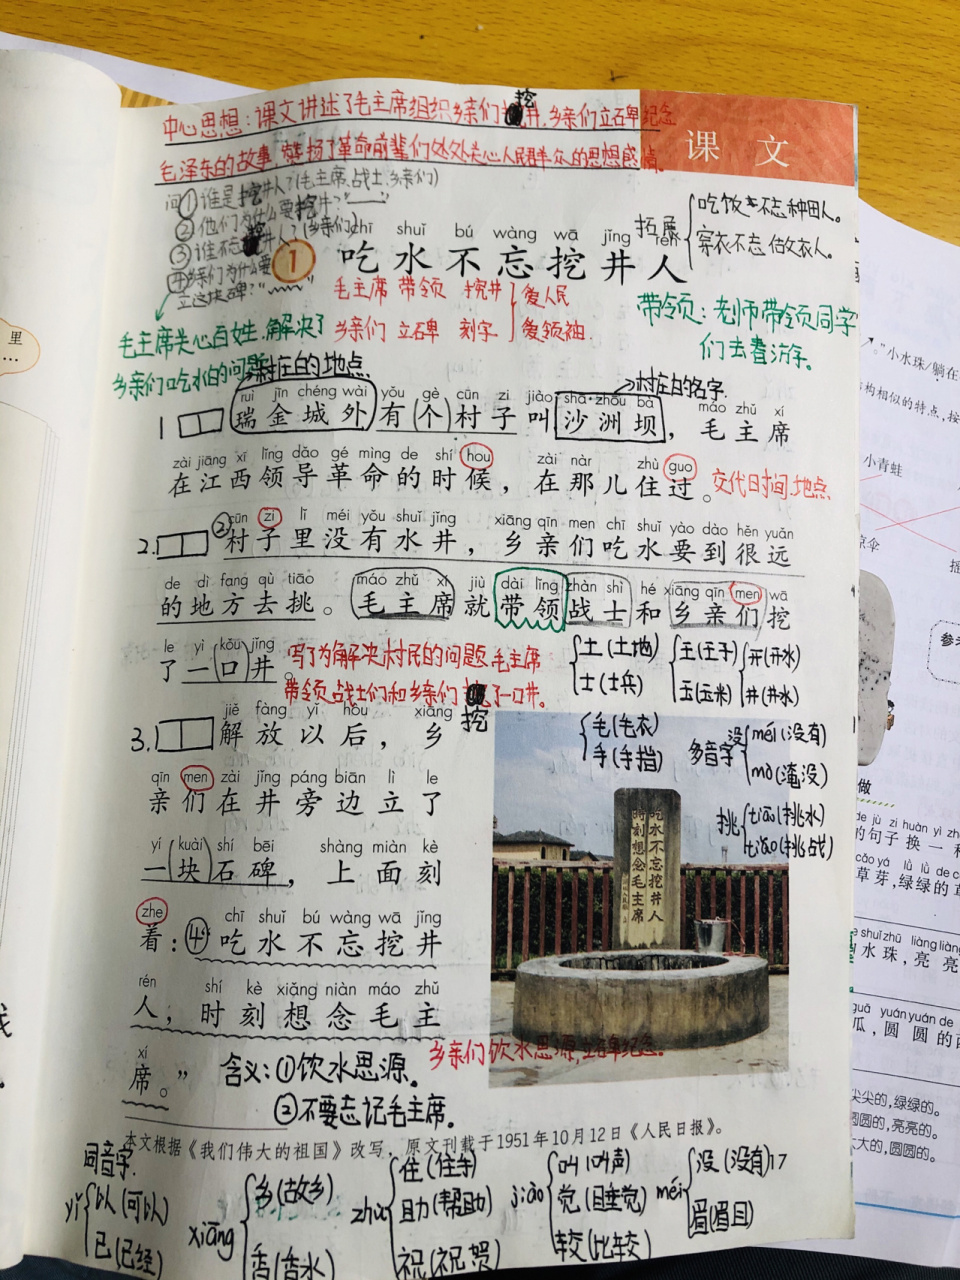 中心思想：课文讲述了毛主席组织乡亲们挖井,乡亲们立石碑纪念
毛泽东的故事,赞扬了革命前辈们处处关心人民群众的思想感情。
课 文
问①谁是挖井人?(毛主席、战士、乡亲们)
②他们为什么要挖井?"
③谁不忘挖井人?(乡亲们)
④乡亲们为什么要
立这块碑?"
拓展
吃饭不忘种田人。
穿衣不忘做衣人。
chī shuǐ bú wàng wā jǐng rén
1 吃水不忘挖井人
毛主席 带领 挖井 爱人民
乡亲们 立石碑 刻字 爱领袖
带领：老师带领同学
们去春游。
毛主席关心百姓,解决了
乡亲们吃水的问题
村庄的地点
村庄的名字
ruì jīn chéng wài yǒu gè cūn zi jiào shā zhōu bà máo zhǔ xí
1 瑞金城外有个村子叫沙洲坝，毛主席
zài jiāng xī lǐng dǎo gé mìng de shí hou zài nàr zhù guo
在江西领导革命的时候，在那儿住过。
交代时间、地点
cūn zi lǐ méi yǒu shuǐ jǐng xiāng qīn men chī shuǐ yào dào hěn yuǎn
2. ②村子里没有水井，乡亲们吃水要到很远
de dì fang qù tiāo máo zhǔ xí jiù dài lǐng zhàn shì hé xiāng qīn men wā
的地方去挑。毛主席就带领战士和乡亲们挖
le yì kǒu jǐng
了一口井。
写了为解决村民的问题,毛主席
带领战士们和乡亲们挖了一口井。
土(土地)
士(士兵)
主(王子)
玉(玉米)
开(开水)
井(井水)
jiě fàng yǐ hòu xiāng
3. 解放以后，乡
qīn men zài jǐng páng biān lì le
亲们在井旁边立了
yí kuài shí bēi shàng miàn kè
一块石碑，上面刻
zhe chī shuǐ bú wàng wā jǐng
着：④吃水不忘挖井
rén shí kè xiǎng niàn máo zhǔ
人，时刻想念毛主
xí
席。”
毛(毛衣)
手(手挡)
多音字
没 méi(没有)
mò(淹没)
挑 tiāo(挑水)
tiǎo(挑战)
吃水不忘挖井人
时刻想念毛主席
乡亲们饮水思源,立碑纪念。
含义：①饮水思源。
②不要忘记毛主席。
本文根据《我们伟大的祖国》改写，原文刊载于1951年10月12日《人民日报》。
17
同音字
yǐ 以(可以)
已(已经)
xiāng 乡(故乡)
香(香水)
zhù 住(住车)
助(帮助)
祝(祝贺)
jiào 叫(叫声)
觉(睡觉)
较(比较)
méi 没(没有)
眉(眉目)
里
…
”小水珠/躺在
构相似的特点，按
小青蛙
凉伞
摇
参考
做
de jù zi huàn yì zh
的句子换一种
cǎo yá lǜ lǜ de c
草芽,绿绿的草
shuǐ zhū liàng liàng
水珠,亮亮
guā yuán yuán de
瓜,圆圆的西
尖尖的,绿绿的。
圆圆的,亮亮的。
大大的,圆圆的。